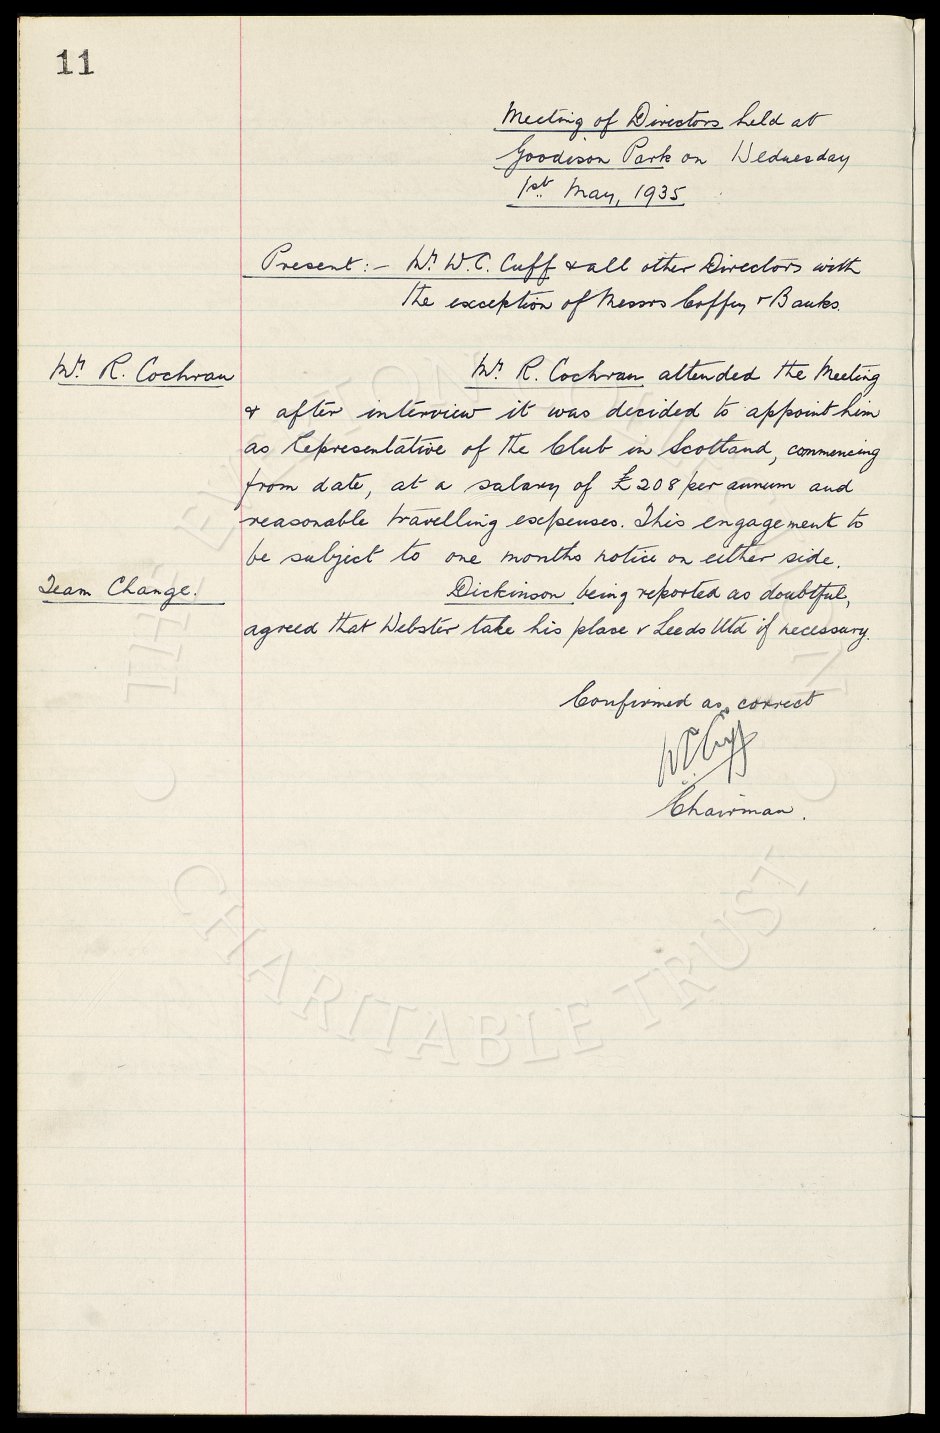 11
Meeting of Directors held at
Goodison Park on Wednesday
1st May, 1935
Present:- Mr. W.C. Cuff & all other Directors with
the exception of Messrs Coffey & Banks.
Mr. R. Cochran
Mr. R. Cochran attended the Meeting
& after interview it was decided to appoint him
as Representative of the Club in Scotland, commencing
from date, at a salary of £208 per annum and
reasonable travelling expenses. This engagement to
be subject to one months notice on either side.
Team Change.
Dickinson being reported as doubtful,
agreed that Webster take his place v Leeds Utd if necessary.
Confirmed as correct
W C Cuff
Chairman.
THE EVERTON
CHARITABLE TRUST